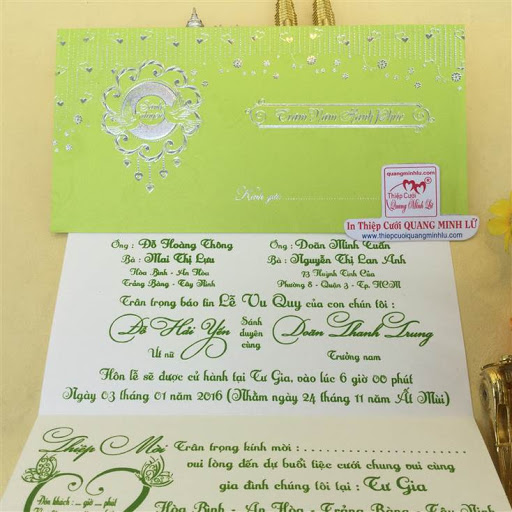 Trăm Năm Hạnh Phúc
Kính gửi
quangminhlu.com
Thiệp Cưới
Quang Minh Lữ
In Thiệp Cưới QUANG MINH LỮ
www.thiepcuoiquangminhlu.com
Ông : Đỗ Hoàng Thông Ông : Doãn Minh Tuấn
Bà : Mai Thị Lựu Bà : Nguyễn Thị Lan Anh
Hòa Bình - An Hòa 73 Huỳnh Tịnh Của
Trảng Bàng - Tây Ninh Phường 8 - Quận 3 - Tp. HCM
Trân trọng báo tin Lễ Vu Quy của con chúng tôi :
Đỗ Hải Yến Sánh duyên cùng Doãn Thanh Trung
Út nữ Trưởng nam
Hôn lễ sẽ được cử hành tại Tư Gia, vào lúc 6 giờ 00 phút
Ngày 03 tháng 01 năm 2016 (Nhằm ngày 24 tháng 11 năm Ất Mùi)
Thiệp Mời Trân trọng kính mời : ..............................
vui lòng đến dự buổi tiệc cưới chung vui cùng
gia đình chúng tôi tại : Tư Gia
Đón khách : ... giờ ... phút
Hòa Bình - An Hòa - Trảng Bàng - Tây Ninh